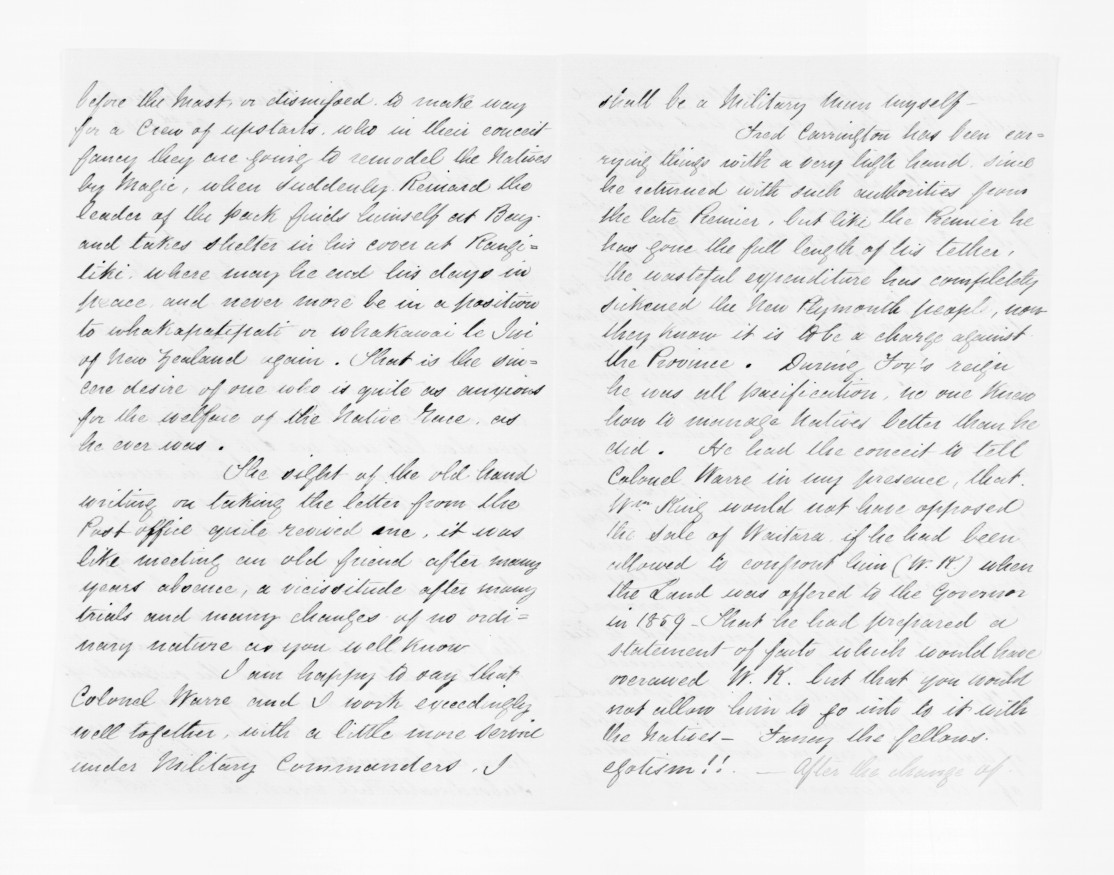 before the Mast, or dismissed. to make way
for a Crew of upstarts, who in their conceit
fancy they are going to remodel the Natives
by Magic, when suddenly Reinard the
leader of the pack finds himself at Bay.
and takes shelter in his cover at Rangi=
tiki. where may he end his days in
peace and never more be in a position
to whakapatipati or whakawai te Iwi
of New Zealand again. That is the sin=
cere desire of one who is quite as anxious
for the welfare of the Native Race, as
he ever was.
The sight of the old hand
writing on taking the letter from the
Post office quite revived me, it was
like meeting an old friend after many
years absence, a vicissitude after many
trials and many changes of no ordi=
nary nature as you well know
I am happy to say that
Colonel Warre and I work exceedingly
well together, with a little more service
under Military Commanders, I
shall be a Military man myself-
Fred Carrington has been car=
rying things with a very high hand. since
he returned with such authorities from
the late Premier, but like the Premier he
has gone the full length of his tether,
the wasteful expenditure has completely
sickened the New Plymouth people, now
they know it is to be a charge against
the Province. During Fox's reign
he was all pacification, no one knew
how to manage Natives better than he
did. He had the conceit to tell
Colonel Warre in my presence, that.
Wm King would not have opposed
the sale of Waitara if he had been
allowed to confront him (W. K.) when
the Land was offered to the Governor
in 1859 - That he had prepared a
statement of facts which would have
overawed W. K. but that you would
not allow him to go into to it with
the Natives - Fancy the fellows.
egotism!!. - After the change of